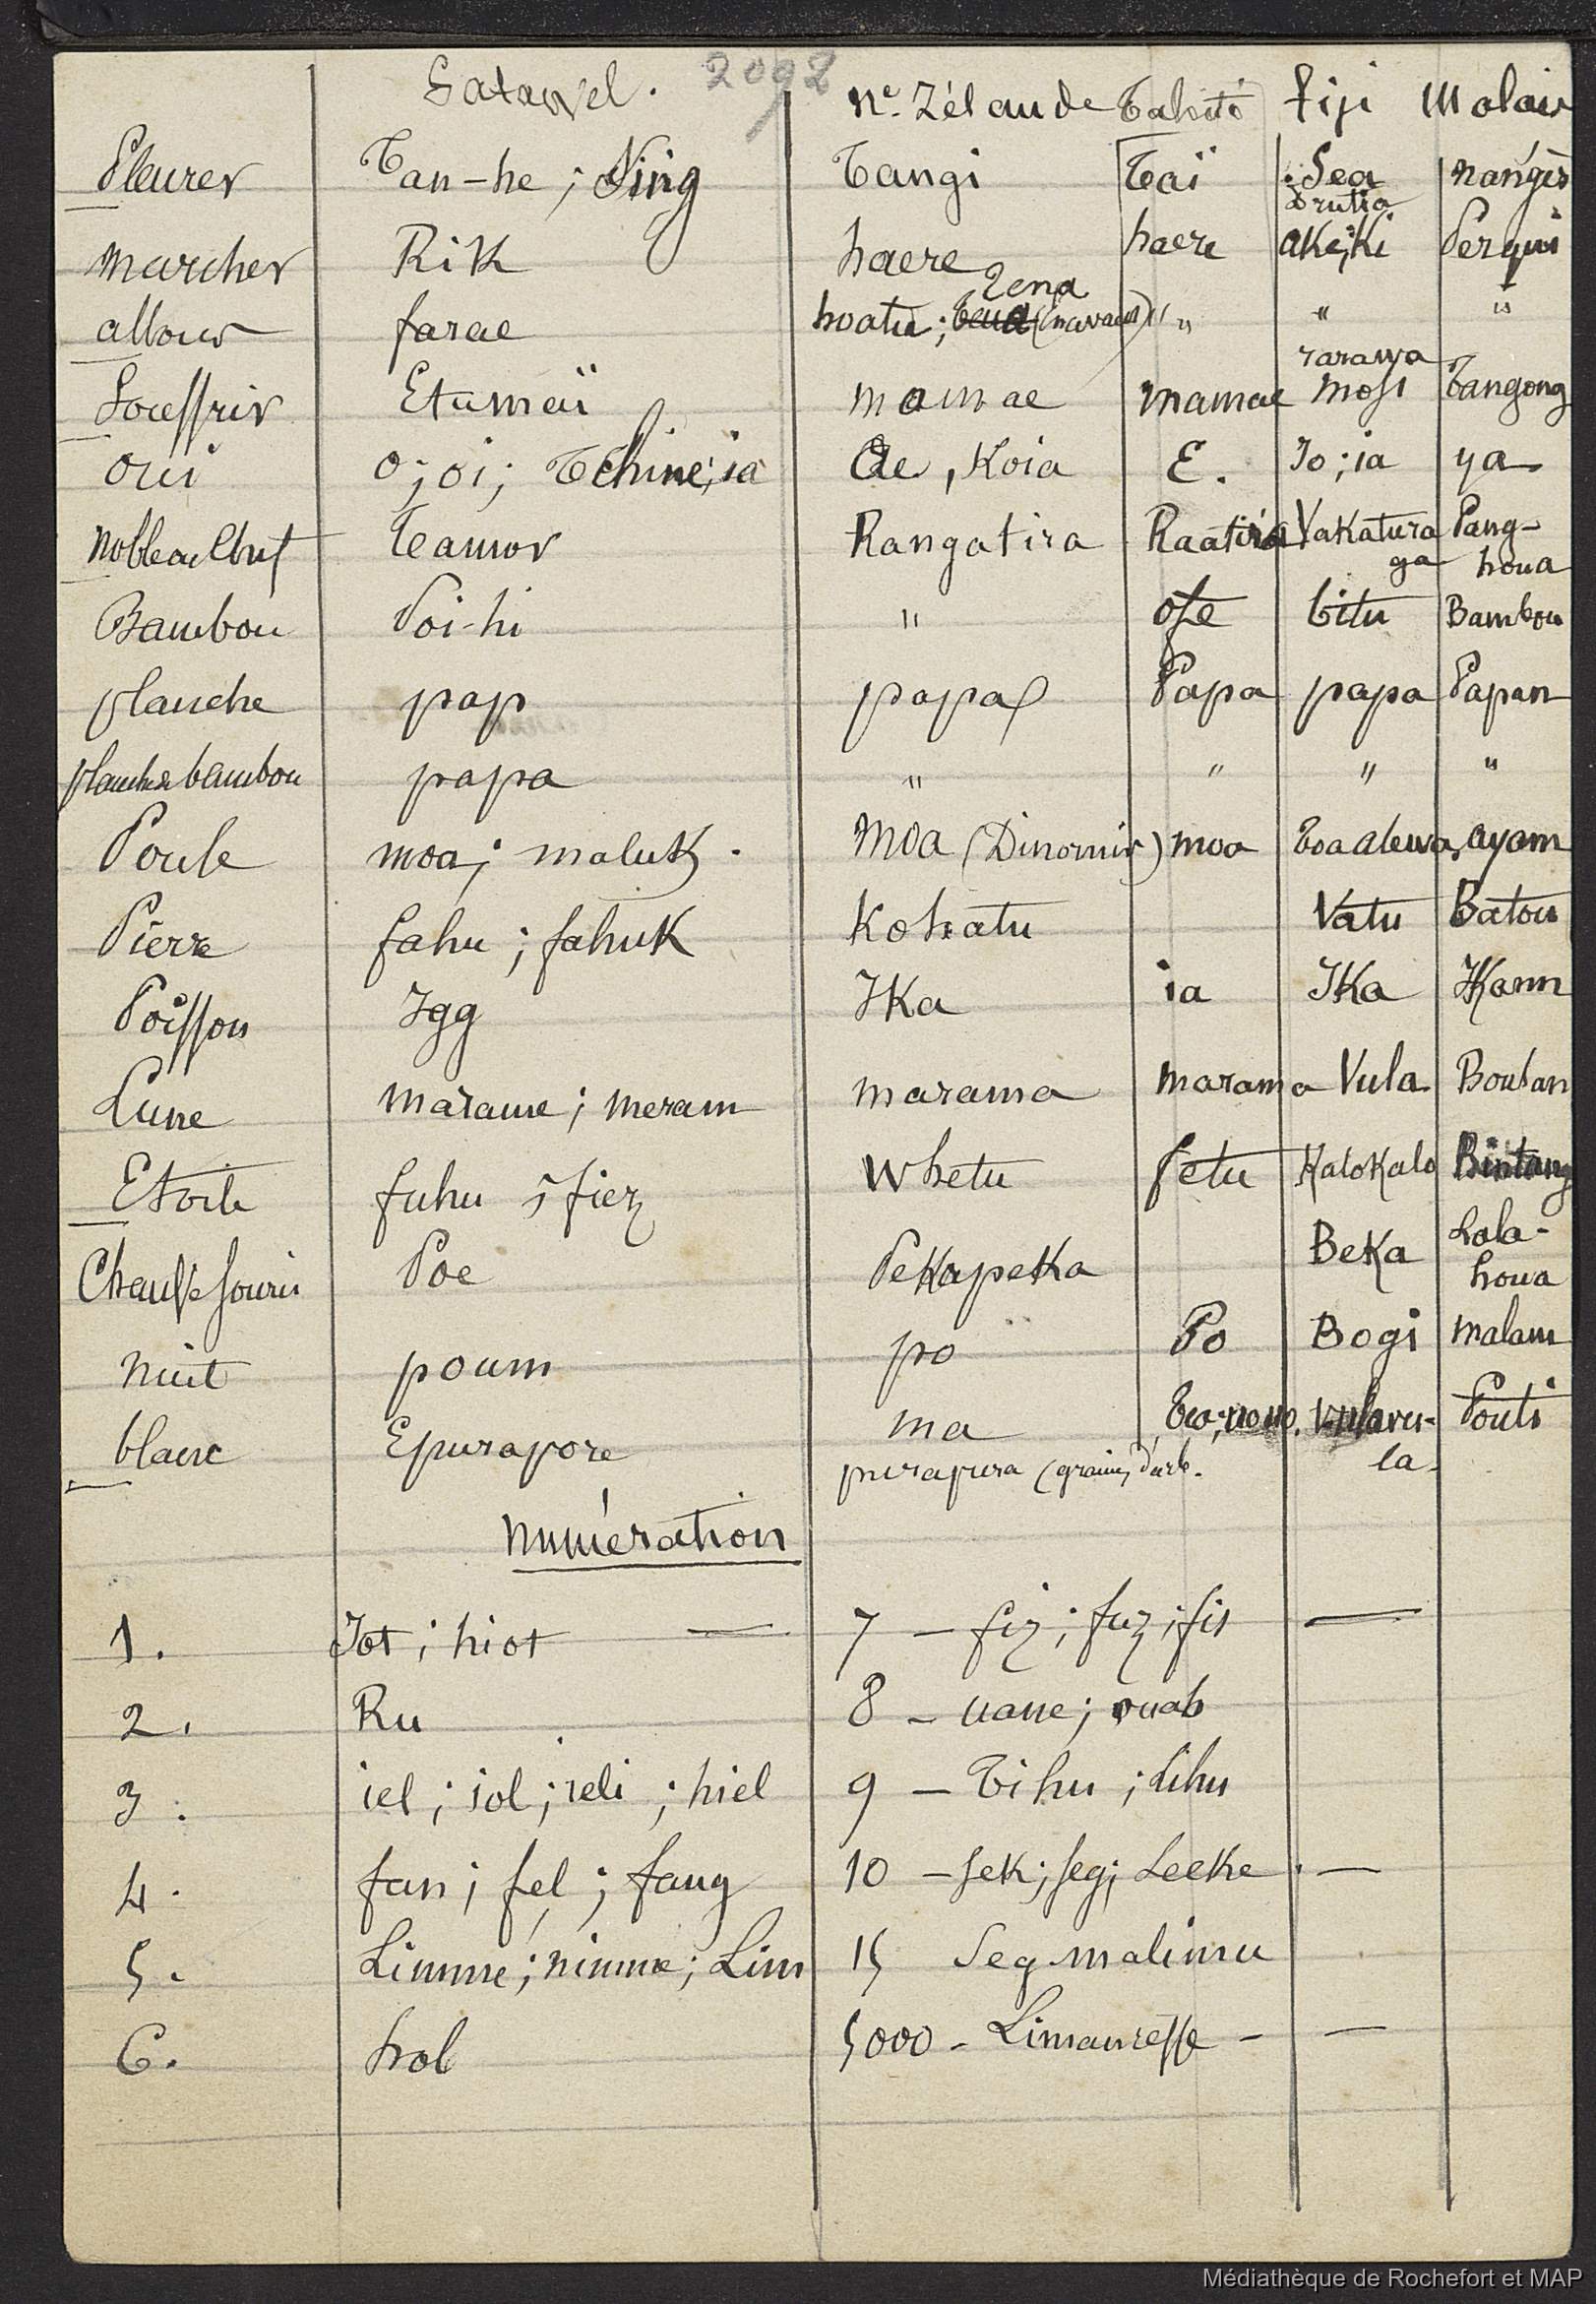 Satawel. 2092 Nᵉ. Zélande Tahiti Fiji Malais
Pleurer Tan-he ; Ning Tangi Taï Sea nangis
Drutia
Marcher Rik haere haere ake;ki
Zena
allons farae hoatu ; " " "
rarawa
Souffrir Etameii mamae mamae mosi Tangong
Oui o ; oi ; Tchine; ia Ae, Koia E. Io ; ia ya
Noble ou Chef Teamor Rangatira Raatira Vakatura Pang-
ga houa
Bambou Poi-hi " ofe bitu Bambou
planche pap papa Papa papa Papan
planche bambou papa " " " "
Poule moa ; maluk . Moa (Dinornis) moa Toa alewa, ayam
Pierre fahu ; fahuk Kohatu Vatu Batou
Poisson Igg Ika ia Ika Ikann
Lune marame ; meram marama marama Vula Boulan
Etoile fuhu ; fiez Whetu fetu Kalokalo Bintang
Chauve souris Poe Pekapeka Beka Lala-
houa
Nuit poum po Po Bogi malam
blanc Epurapore ma Tea; uouo. Vulavu- Pouti
purapura (graine, d'arb. la.
Numération
1. Iot ; hiot — 7 — fiz ; fuz ; fis —
2. Ru 8 — uane ; ouab
3. iel ; iol ; ieli ; hiel 9 — Tihu ; lihu
4. fan ; fel ; fang 10 — sek ; seg; Seeke . —
5. Limme ; nimme ; Lim 15 Seg malimu
6. hol 5000 - Limanresse - —
Médiathèque de Rochefort et MAP